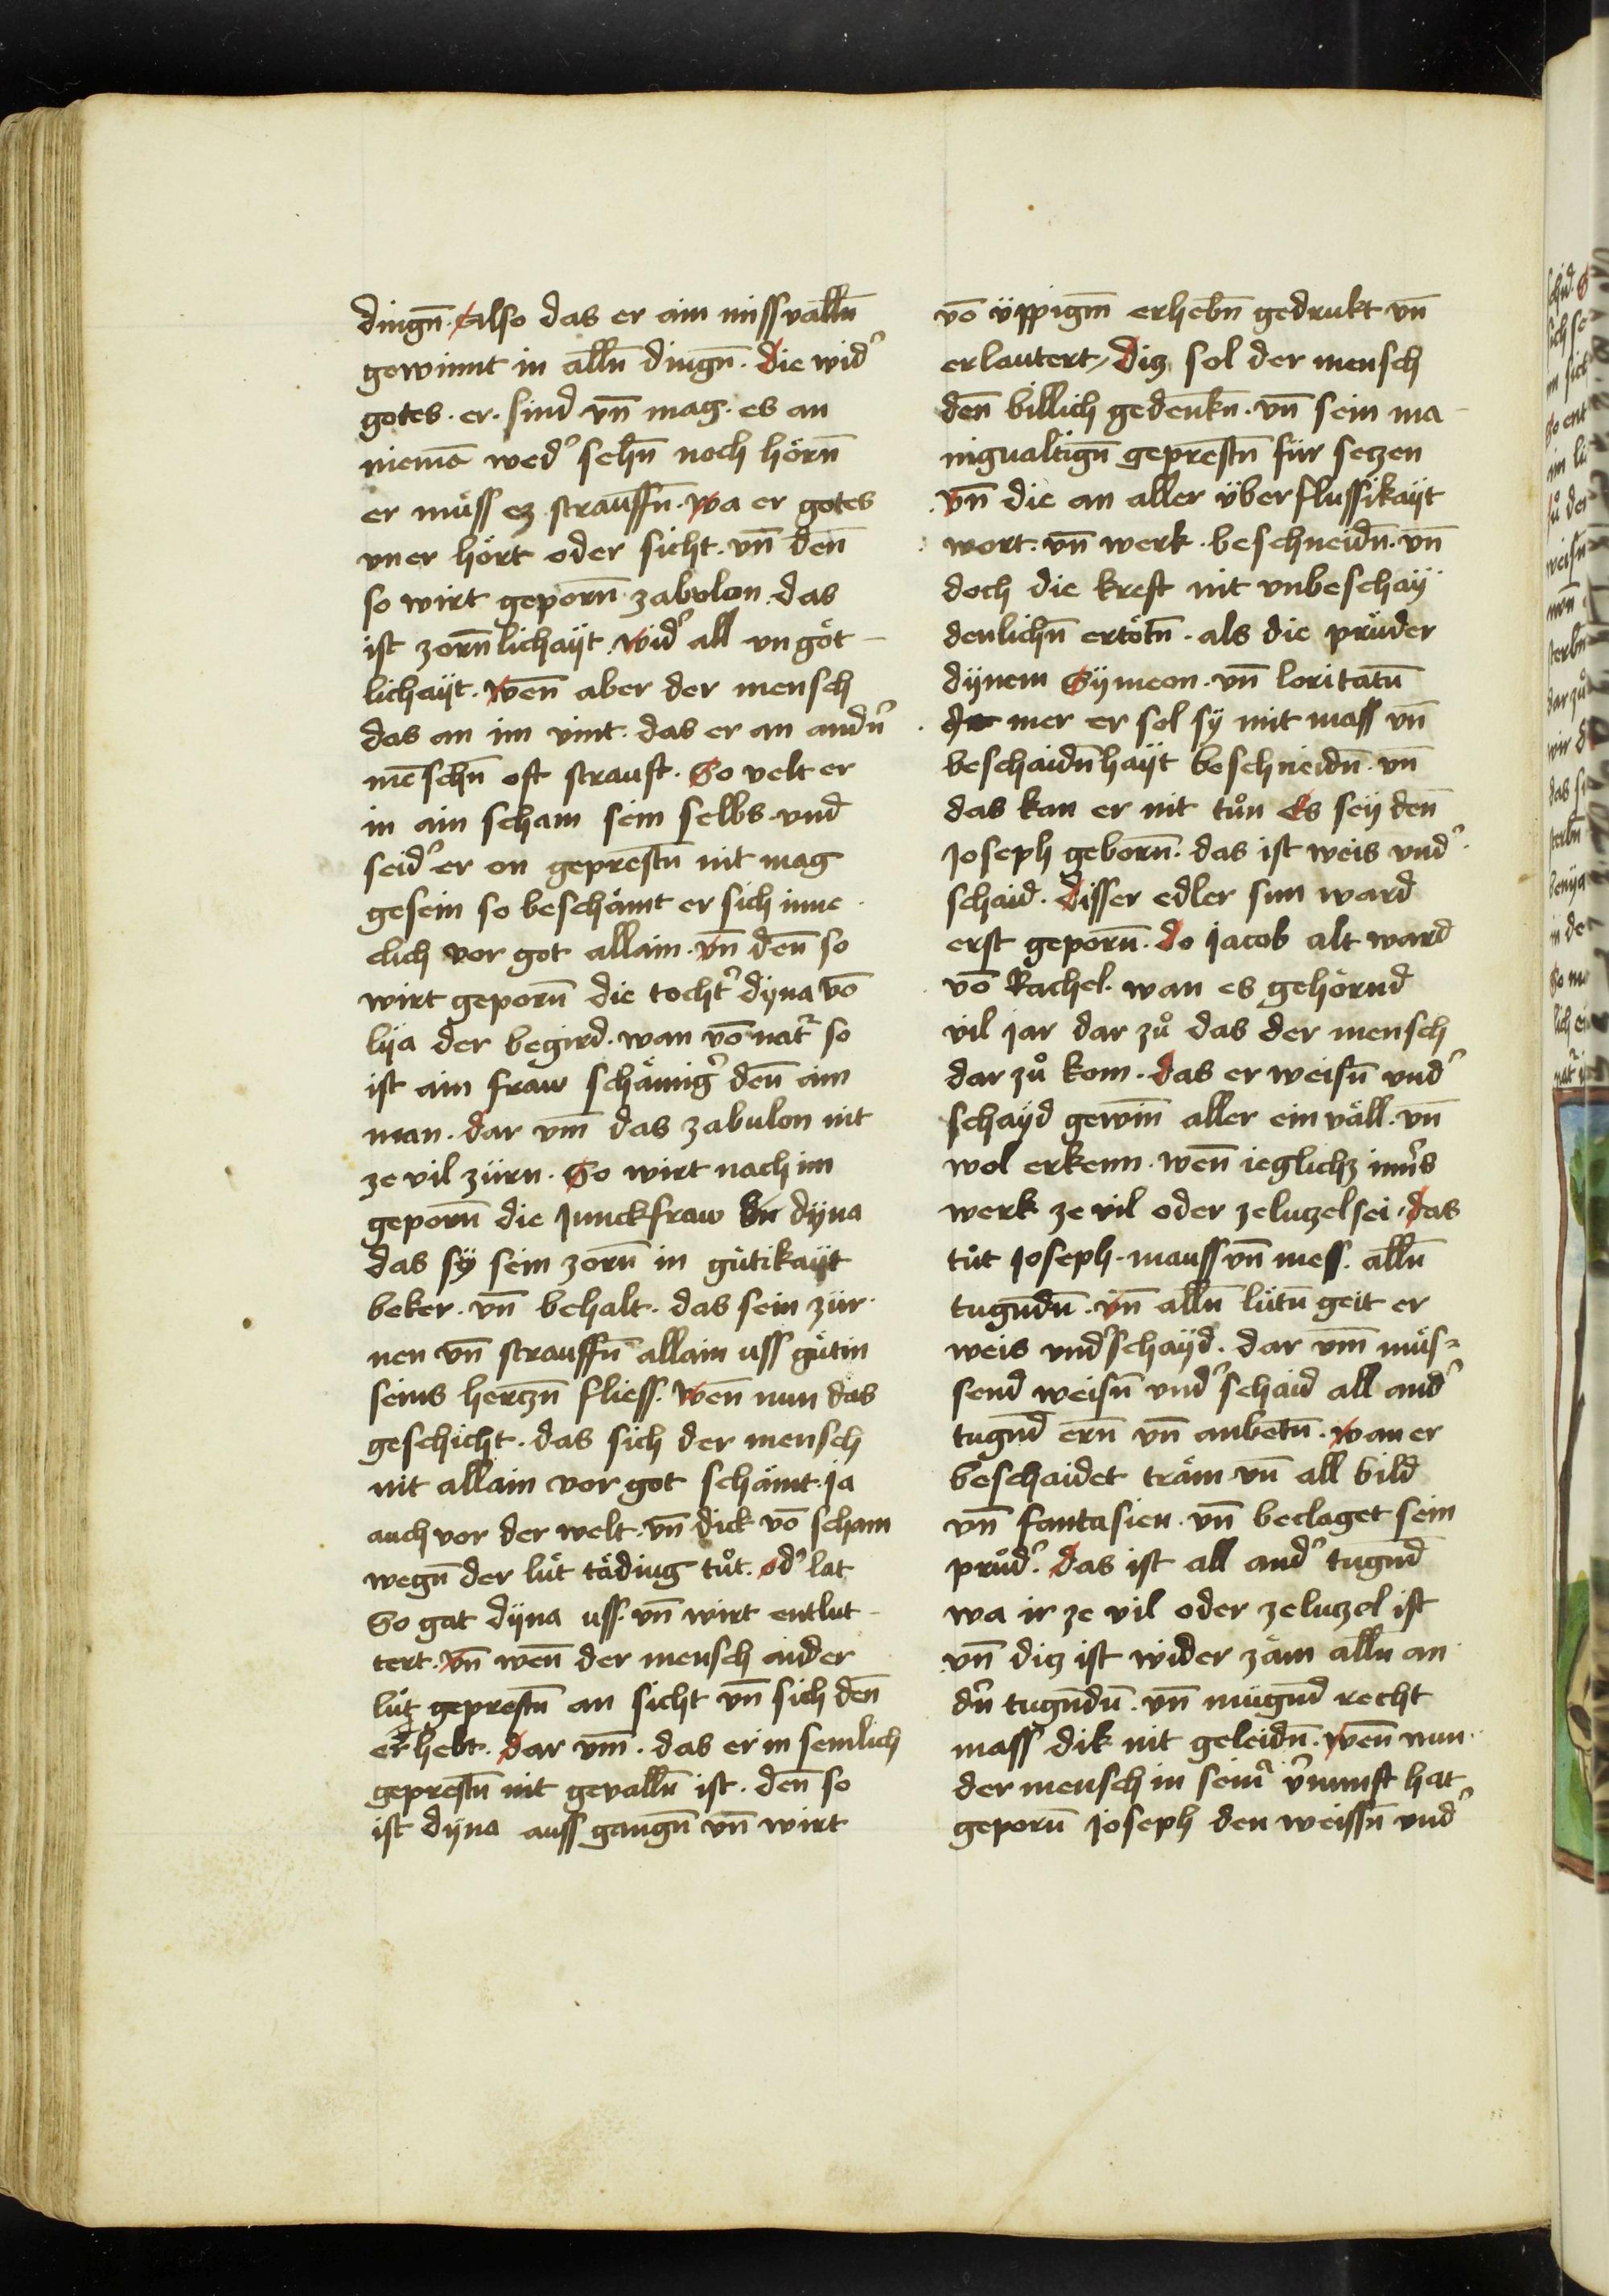 dingn̄. Also das er ain missvalln̄
gewinnt in alln̄ dingn̄. die wid᾽
gotes. er. sind vn̄ mag. es an
niemā wed᾽ sehn̄ noch hörn̄
er müss ez strauffn̄. wa er gotes
vner hört oder sicht. vn̄ den̄
so wirt geporn̄ zabulon. das
ist zorn̄lichaÿt. wid᾽ all vngöt-
lichaÿt. wen̄ aber der mensch
das an im vint. das er an andn᾽
mēschn̄ oft strauft. So velt er
in ain scham sein selbs. vnd
seid᾽ er on geprestn̄ nit mag
gesein so beschämt er sich inne
clich vor got allain. vn̄ den̄ so
wirt geporn̄ die tocht᾽ dÿna vō
lÿa der begird. wan vō nat᾽ so
ist ain fraw schämig᾽ den̄ ain
man. dar vm̄ das zabulon nit
ze vil zürn. So wirt nach im
geporn̄ die junckfraw dÿna
das sÿ sein zorn̄ in gütikaÿt
beker. vn̄ behalt. das sein zür-
nen vn̄ strauffn̄ allain uss gütin
seins hertzn̄ fliess. wen̄ nun das
geschicht. das sich der mensch
nit allain vor got schämt. ja
auch vor der welt. vn̄ dick vō scham
wegn̄ der lüt täding tůt. od᾽ lat
So gat dÿna uss. vn̄ wirt entlut-
tert. vn̄ wen̄ der mensch ander
lüt geprestn̄ an sicht vn̄ sich den̄
er hebt. dar vm̄. das er in semlich
geprestn̄ nit gevalln̄ ist. den̄ so
ist dÿna auss gangn̄ vn̄ wirt
vō üppigm̄ erhebn̄ gedrukt vn̄
erlautert / diz sol der mensch
den̄ billich gedenkn̄. vn̄ sein ma-
nigualtign̄ geprestn̄ für setzen
vn̄ die an aller überflussikaÿt
wort. vn̄ werk. beschneidn̄. vn̄
doch die kreft nit vnbeschaÿ
denlichn̄ ertötn̄. als die prüder
dÿnem Sÿmeon. vn̄ loritatn̄
mer er sol sÿ mit mass vn̄
beschaidn̄haÿt beschneidn̄. vn̄
das kan er nit tůn Es seÿ den̄
Joseph geborn̄. das ist weis vnd᾽
schaid. disser edler sun ward
erst geporn̄. do jacob alt ward
vō Rachel. wan es gehörnd
vil jar dar zů das der mensch
dar zů kom. das er weisn̄ vnd᾽
schaÿd gewin̄ aller ein väll. vn̄
wol erkenn. wen̄ ieglichz inn᾽s
werk ze vil oder ze lutzel sei. das
tůt Joseph. mauss vn̄ mess. alln̄
tugndn̄. vn̄ alln̄ lütn̄ geit er
weis vnd᾽schaÿd. dar vm̄ müs-
send weisn̄ vnd᾽ schaid all and᾽
tugnd̄ ern̄ vn̄ anbetn̄. wan er
beschaidet träm vn̄ all bild
vn̄ fantasien. vn̄ beclaget sein
prüd᾽. das ist all and᾽ tugnd̄
wa ir ze vil oder ze lutzel ist
vn̄ diz ist wider zäm alln̄ an
dn᾽ tugndn̄. vn̄ mügnd̄ recht
mass dik nit geleidn̄. wen̄ nun
der mensch in sein᾽ v᾽nunft hat
geporn̄ joseph den weissn̄ vnd᾽